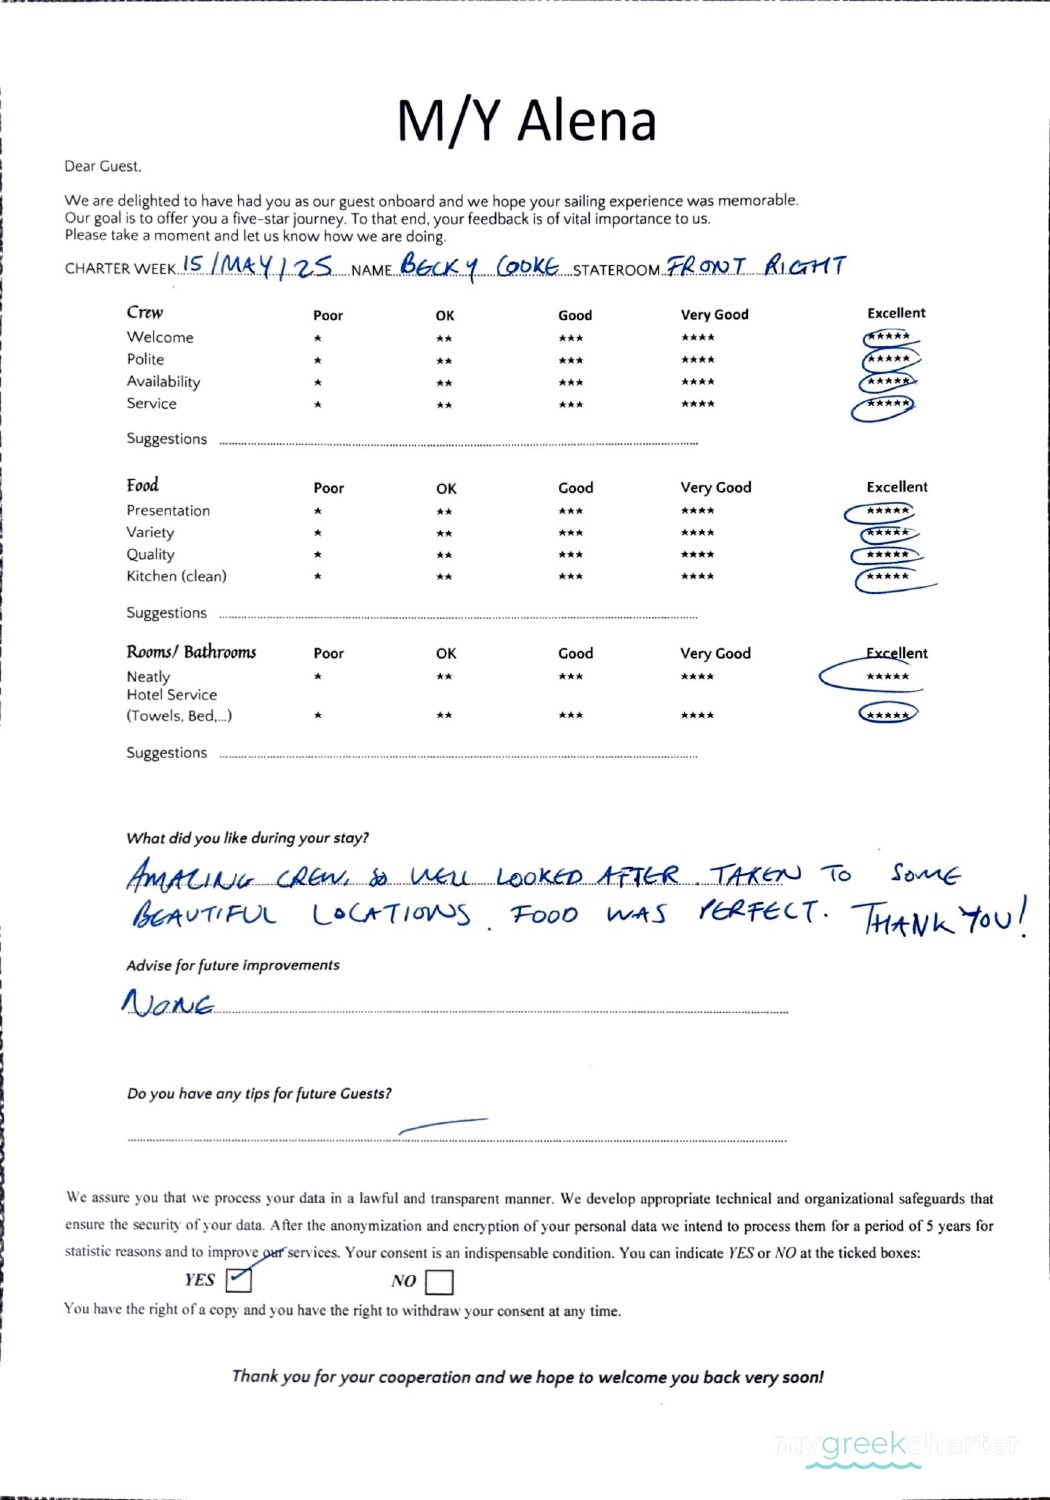 M/Y Alena
Dear Guest,
We are delighted to have had you as our guest onboard and we hope your sailing experience was memorable.
Our goal is to offer you a five-star journey. To that end, your feedback is of vital importance to us.
Please take a moment and let us know how we are doing.
CHARTER WEEK 15/MAY/25 NAME BECKY COOKE STATEROOM FRONT RIGHT
Crew Poor OK Good Very Good Excellent
Welcome ★ ★★ ★★★ ★★★★ ★★★★★
Polite ★ ★★ ★★★ ★★★★ ★★★★★
Availability ★ ★★ ★★★ ★★★★ ★★★★★
Service ★ ★★ ★★★ ★★★★ ★★★★★
Suggestions
Food Poor OK Good Very Good Excellent
Presentation ★ ★★ ★★★ ★★★★ ★★★★★
Variety ★ ★★ ★★★ ★★★★ ★★★★★
Quality ★ ★★ ★★★ ★★★★ ★★★★★
Kitchen (clean) ★ ★★ ★★★ ★★★★ ★★★★★
Suggestions
Rooms/ Bathrooms Poor OK Good Very Good Excellent
Neatly ★ ★★ ★★★ ★★★★ ★★★★★
Hotel Service
(Towels, Bed,...) ★ ★★ ★★★ ★★★★ ★★★★★
Suggestions
What did you like during your stay?
AMAZING CREW, SO WELL LOOKED AFTER. TAKEN TO SOME
BEAUTIFUL LOCATIONS. FOOD WAS PERFECT. THANK YOU!
Advise for future improvements
NONE
Do you have any tips for future Guests?
We assure you that we process your data in a lawful and transparent manner. We develop appropriate technical and organizational safeguards that
ensure the security of your data. After the anonymization and encryption of your personal data we intend to process them for a period of 5 years for
statistic reasons and to improve our services. Your consent is an indispensable condition. You can indicate YES or NO at the ticked boxes:
YES NO
You have the right of a copy and you have the right to withdraw your consent at any time.
Thank you for your cooperation and we hope to welcome you back very soon!
mygreekcharter